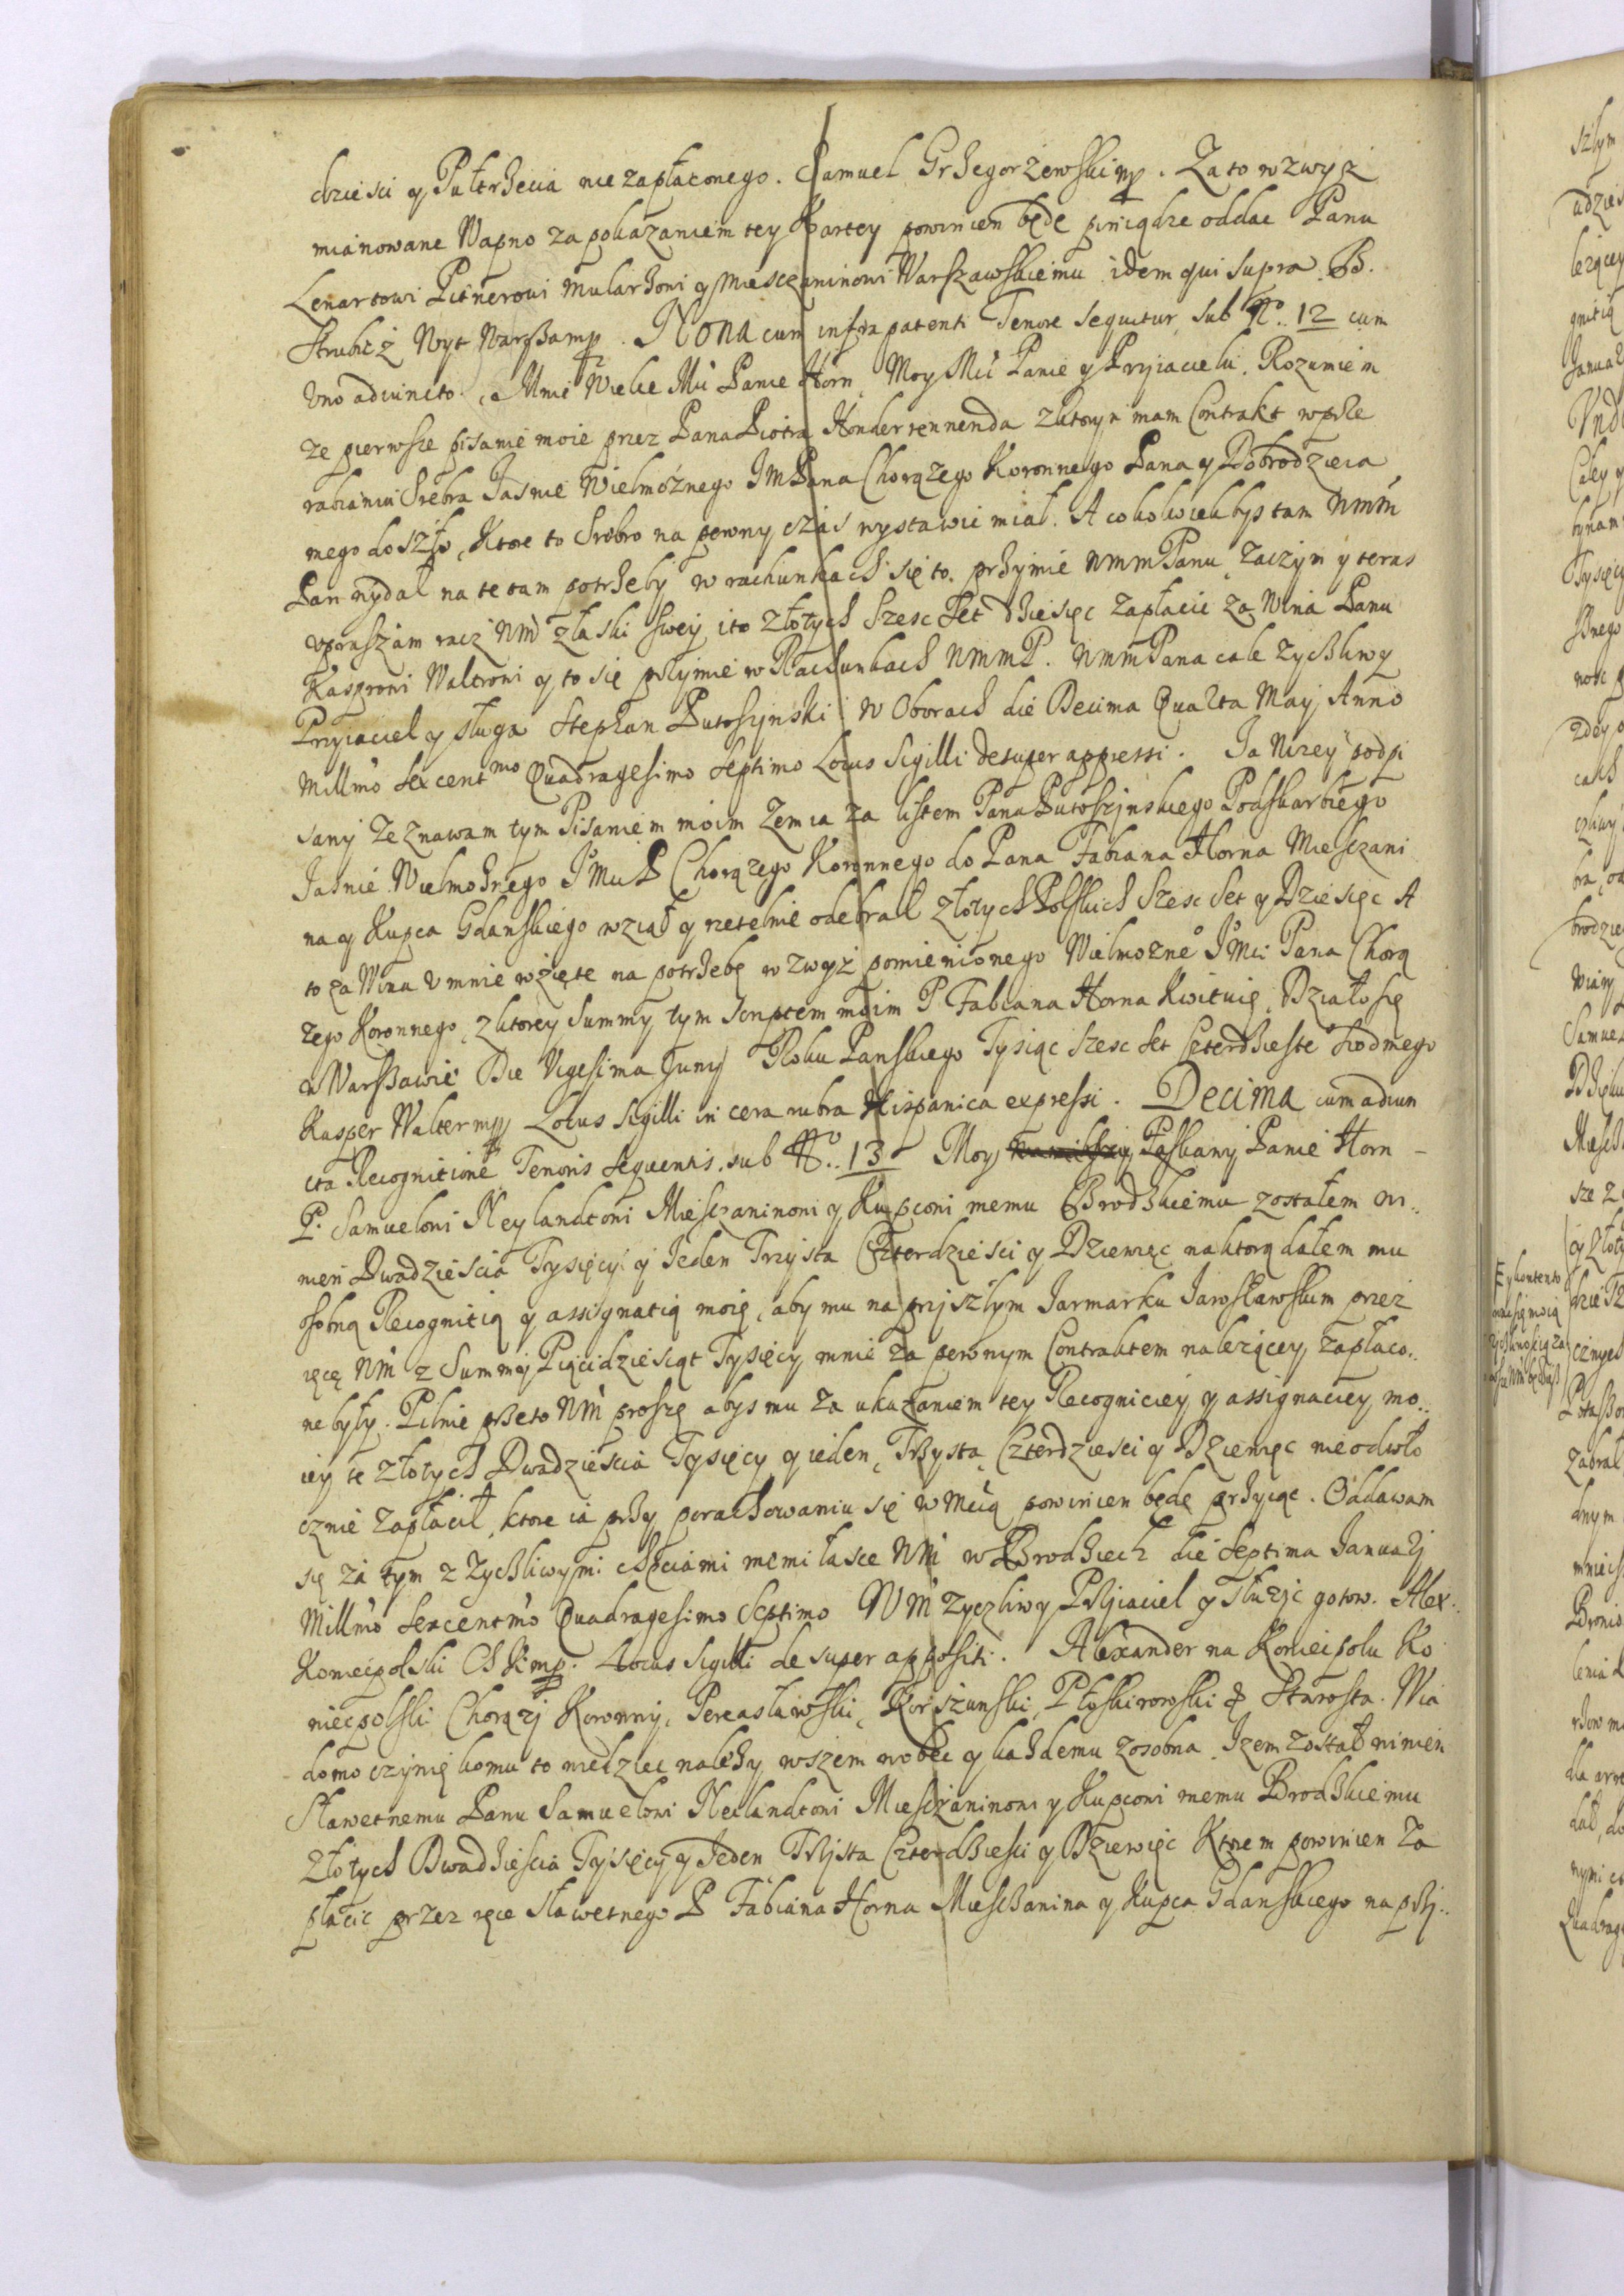 dziesci y Pułtrzecia nie zapłaconego. Samuel Grzegorzewski mp. Za to wzwysz
mianowane Wapno za pokazaniem tey Kartey powinien będę pieniądze oddac Panu
Lenartowi Pitnerowi Mularzowi y Miesczaninowi Warszawskiemu idem qui supra B.
Strubicz Woyt Warszamp. NONA cum infra patenti Tenore sequitur sub No. 12 cum
Uno adiuncto. Mnie Wielce Mci Panie Horn, Moy Mci Panie y Przyiacielu. Rozumiem
ze pierwsze pisanie moie przez Pana Piotra zktorym mam Contrakt wprze
rabianiu Srebra Jasnie Wielmożnego JM Pana Chorązego Koronnego Pana y Dobrodzieia
mego doszło, Ktore to Srebro na pewny czas wystawic miał. A cokolwiekbys tam WMM
Pan wydał na te tam potrzeby w rachunkach się to przyimie WMMPanu, Zaczym y teras
upraszam racz WM złaski swey ito złotych Szesc set dziesięc zapłacic za Wina Panu
Kasprowi Waltrowi y to się przyimie w Rachunkach WMMP. WMMPana cale zyczliwy
Przyiaciel y sługa Stephan Putoszynski W Oborach die Decima Quarta May Anno
Millmo Sexcentmo Quadragesimo Septimo Locus Sigilli desuper appressi. Ia Nizey podpi
sany Zeznawam tym Pisaniem moim Zem ia za listem Pana Putoszynskiego Podskarbiego
Jasnie Wielmożnego JMci P Chorązego Koronnego do Pana Fabiana Horna Miesczani
na y Kupca Gdanskiego wziął y rzetelnie odebrał złotych Polskich Szesc set y Dziesięc A
to za Wina u mnie wzięte na potrzebę wzwyż pomienionego Wielmozneo JMci Pana Chorą
zego Koronnego, zktorey summy tym Scriptem moim P Fabiana Horna Kwituię, Działo się
w Warszawie Die Vigesima Juny Roku Panskiego Tysiąc szesc set Czterdzieste siodmego
Kasper Walter mp Locus Sigilli in cera rubra Hispanica expressi. Decima cum adiun
cta Recognitione Tenoris sequentis sub No. 13 Moy Łaskawy Panie Horn -
P. Samuelowi Neylandtowi Miesczaninowi y Kupcowi memu Brodzkiemu zostałem wi..
nien Dwadziescia Tysięcy y Jeden Trzysta Czterdziesci y Dziewięc naktorą dałem mu
osobną Recognitią y assignatią moię, aby mu na przyszłym Jarmarku Jarosławskim przez
ręcę WM z Summy Pięcidziesiąt Tysięcy mnie za pewnym Contraktem należącey zapłaco..
ne były. Pilnie przeto WM proszę abys mu za ukazaniem tey Recogniciey y assignaciey mo..
iey te złotych Dwadziescia Tysięcy y ieden, Trzysta, Czterdziesci y Dziewięc nieodwło
cznie zapłacił, ktore ia przy porachowaniu się w Mcią powinien będę przyiąc. Oddawam
się za tym z zyczliwymi chęciami memi łasce WM w Brodziech die Septima Januarj
Millmo Sexcentmo Quadragesimo Septimo WM zyczliwy Przyiaciel y służyc gotow. Alex..
Koniecpolski Ch K mp. Locus Sigilli de super appositi. Alexander na Koniecpolu Ko
niecpolski Chorązy Koronny, Pereasławski, Korszunski, Płoskirowski & Starosta. Wia
domo czynię komu to wiedziec nalezy wszem wobec y kazdemu zosobna, Jzem został winien
Sławetnemu Panu Samuelowi Neilandtowi Miesczaninowi y Kupcowi memu Brodzkiemu
złotych Dwadziescia Tysięcy y Jeden Trzysta Czterdziesci y Dziewięc Ktorem powinien za
płacic przez ręce Sławetnego P Fabiana Horna Miesczanina y Kupca Gdanskiego na przy..